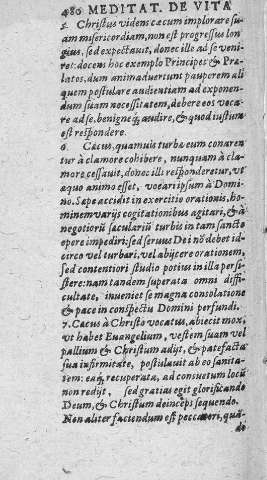 480 MEDITAT. DE VITA
5. Christus videns cæcum implorare su-
am misericordiam, non est progressus lon
gius, sed expectauit, donec ille ad se veni-
ret: docens hoc exemplo Principes & Præ-
latos, dum animaduertunt pauperem ali
quem postulare audientiam ad exponen-
dum suam necessitatem, debere eos voca-
re ad se, benigneq; audire, & quod iustum
est respondere.
6. Cæcus, quamuis turbæ eum conaren
tur à clamore cohibere, nunquam à cla-
more cessauit, donec illi responderetur, vt
æquo animo esset, vocari ipsum à Domi-
no. Sæpe accidit in exercitio orationis, ho-
minem varijs cogitationibus agitari, & à
negotiorũ sæculariũ turbis in tam sancto
opere impediri: sed seruus Dei nõ debet id-
circo vel turbari, vel abijcere orationem,
sed contentiori studio potius in illa persi-
stere: nam tandem superata omni diffi-
cultate, inueniet se magna consolatione
& pace in conspectu Domini perfundi.
7. Cæcus à Christo vocatus, abiecit mox,
vt habet Euangelium, vestem suam vel
pallium & Christum adijt, & patefacta
sua infirmitate, postulauit ab eo sanita-
tem: eaq; recuperata, ad consuetum locũ
non redijt, sed gratias egit glorificando
Deum, & Christum deinceps sequendo.
Non aliter faciendum est peccatori, quã-
do